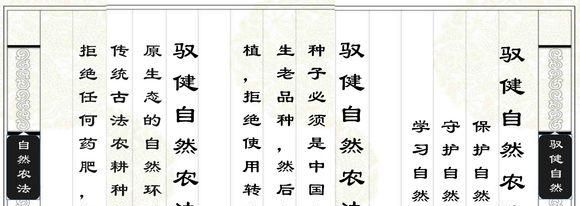 驭健自然
驭健自然农
保护自然
守护自然
学习自然
驭健自然农
种子必须是中国
生老品种，然后
植，拒绝使用转
驭健自然农
原生态的自然环
传统古法农耕种
拒绝任何药肥，
自然农法